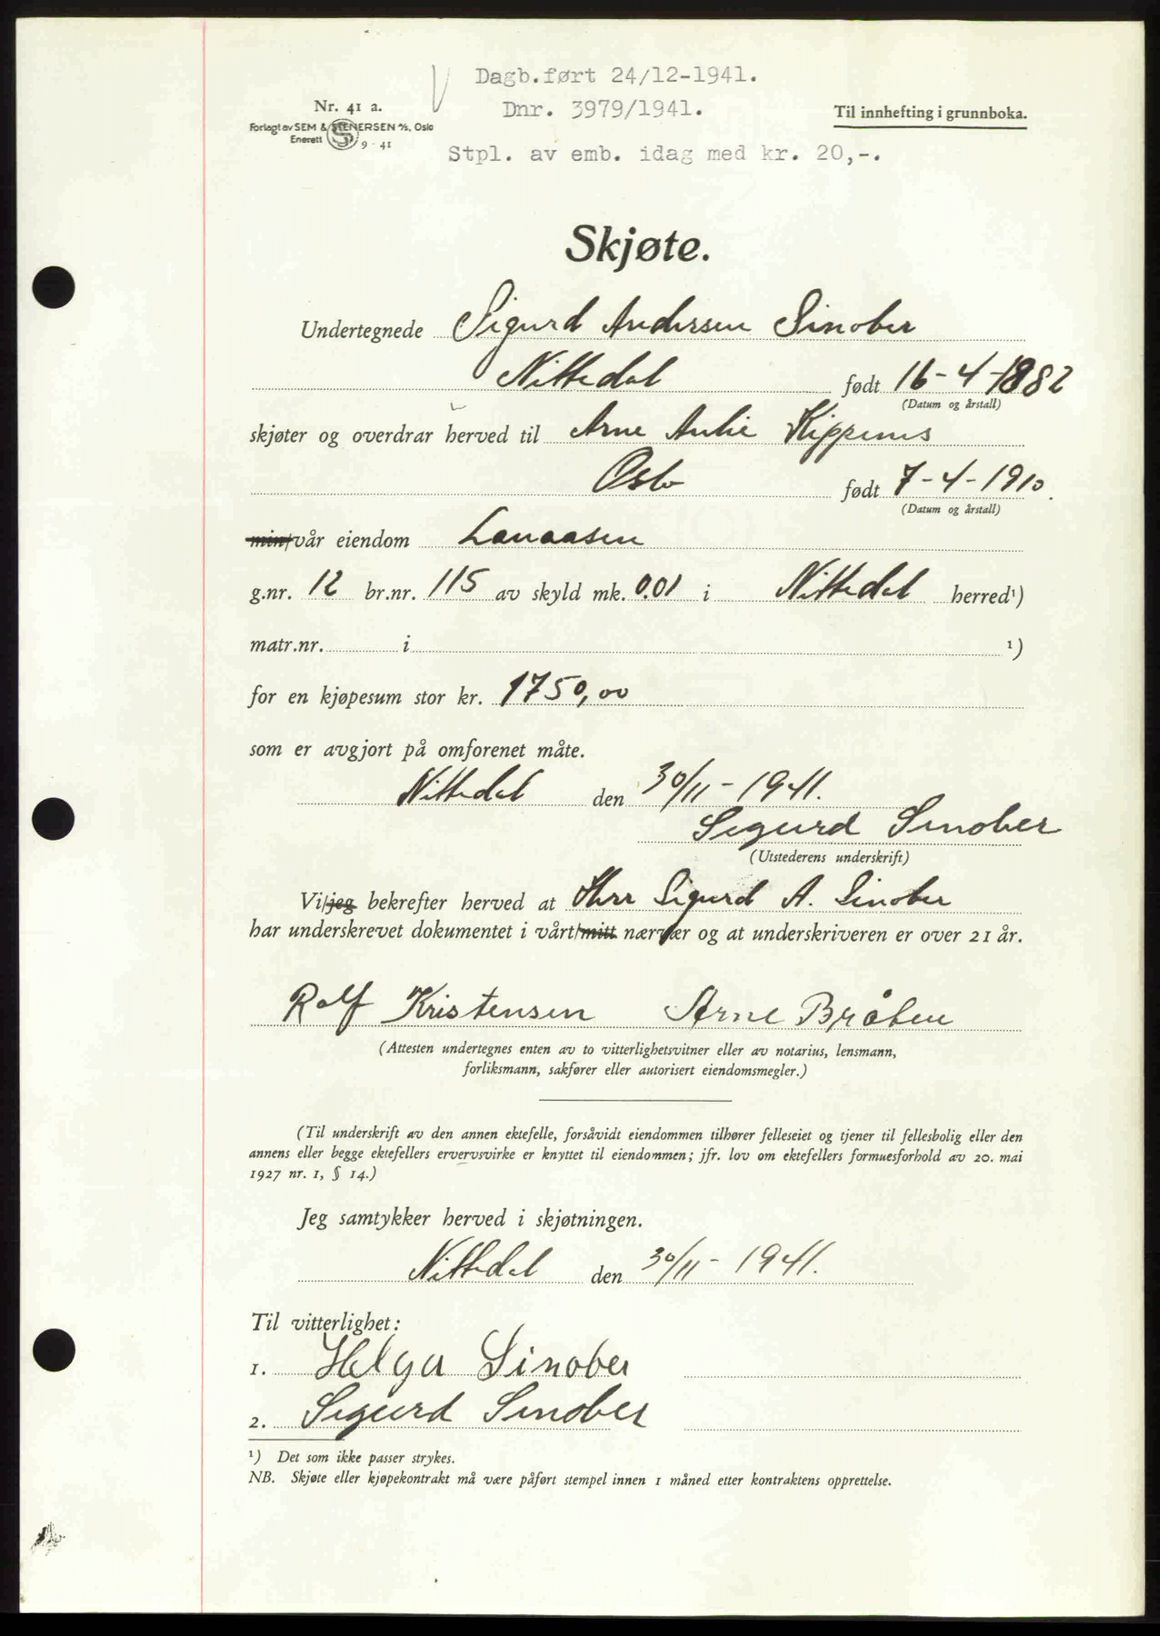 Dagb.ført 24/12-1941.
Nr. 41 a.
Dnr. 3979/1941.
Til innhefting i grunnboka.
Forlagt av SEM & STENERSEN A/S, Oslo
Enerett 9 - 41
Stpl. av emb. idag med kr. 20,-.
Skjøte.
Undertegnede Sigurd Andersen Sinober
Nittedal født 16-4-1882
(Datum og årstall)
skjøter og overdrar herved til Arne
Oslo født 7-4-1910.
(Datum og årstall)
min/vår eiendom Lanaasen
g.nr. 12 br.nr. 115 av skyld mk. 0.01 i Nittedal herred¹)
matr.nr. i ¹)
for en kjøpesum stor kr. 1750,00
som er avgjort på omforenet måte.
Nittedal den 30/11-1941.
Sigurd Sinober
(Utstederens underskrift)
Vi/jeg bekrefter herved at Herr Sigurd A. Sinober
har underskrevet dokumentet i vårt/mitt nærvær og at underskriveren er over 21 år.
Rolf Kristensen Arne Bråten
(Attesten undertegnes enten av to vitterlighetsvitner eller av notarius, lensmann,
forliksmann, sakfører eller autorisert eiendomsmegler.)
(Til underskrift av den annen ektefelle, forsåvidt eiendommen tilhører felleseiet og tjener til fellesbolig eller den
annens eller begge ektefellers ervervsvirke er knyttet til eiendommen; jfr. lov om ektefellers formuesforhold av 20. mai
1927 nr. 1, § 14.)
Jeg samtykker herved i skjøtningen.
Nittedal den 30/11-1941.
Til vitterlighet:
1. Helga Sinober
2. Sigurd Sinober
¹) Det som ikke passer strykes.
NB. Skjøte eller kjøpekontrakt må være påført stempel innen 1 måned etter kontraktens opprettelse.